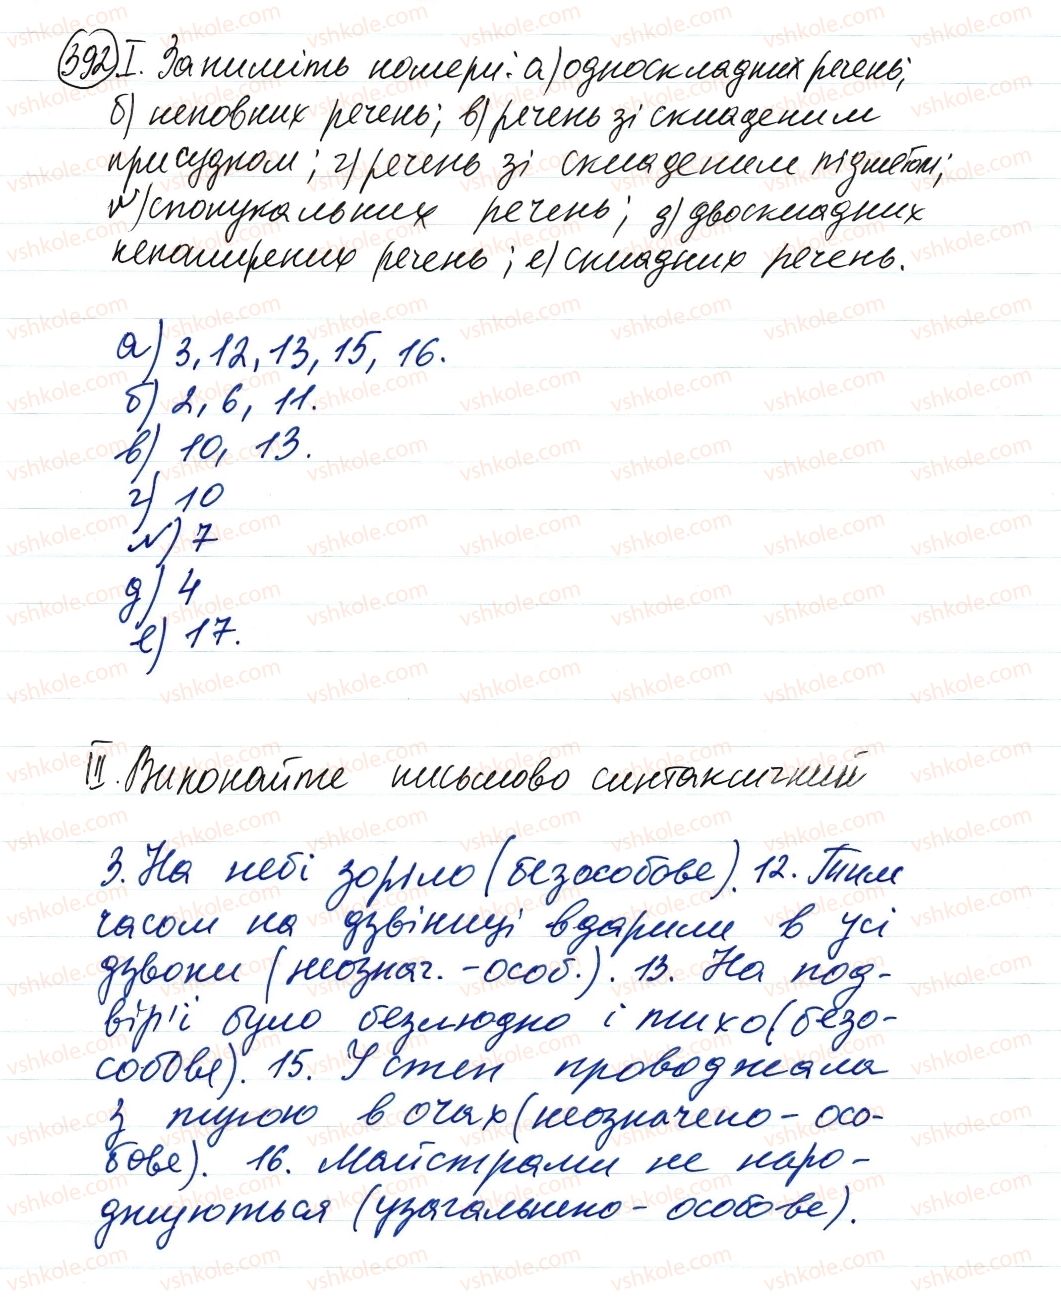 392 I. Запишіть номери: а) односкладних речень;
б) неповних речень; в) речень зі складеним
присудком; г) речень зі складеним підметом;
ґ) спонукальних речень; д) двоскладних
непоширених речень; е) складних речень.
а) 3, 12, 13, 15, 16.
б) 2, 6, 11.
в) 10, 13.
г) 10
ґ) 7
д) 4
е) 17.
II. Виконайте письмово синтаксичний
3. На небі зоріло (безособове). 12. Тим
часом на дзвіниці вдарили в усі
дзвони (неознач.-особ.). 13. На под-
вір'ї було безлюдно і тихо (безо-
собове). 15. У степ проводжала
з тугою в очах (неозначено-осо-
бове). 16. Майстрами не наро-
джуються (узагальнено-особове).